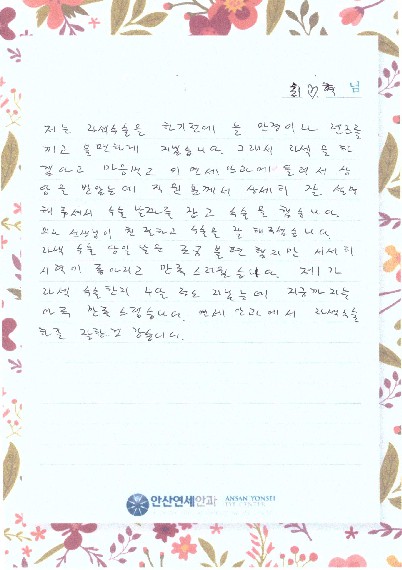 최♡혁 님
저는 라섹수술은 하기전에 늘 안경이나 렌즈를
끼고 불편하게 지냈습니다. 그래서 라섹을 하
겠다고 마음먹고 이 연세안과에 들려서 상
담을 받았는데 직원분께서 상세히 잘 설명
해주셔서 수술 날짜를 잡고 수술을 했습니다.
의사 선생님이 친절하고 수술은 잘 해주셨습니다.
라섹 수술 당일 날은 조금 불편했지만 서서히
시력이 좋아지고 만족스러웠습니다. 제가
라섹 수술한지 4달 정도 지났는데 지금까지는
아주 만족스럽습니다. 연세안과에서 라섹수술
한걸 잘한것 같습니다.
안산연세안과 ANSAN YONSEI
EYE CENTER